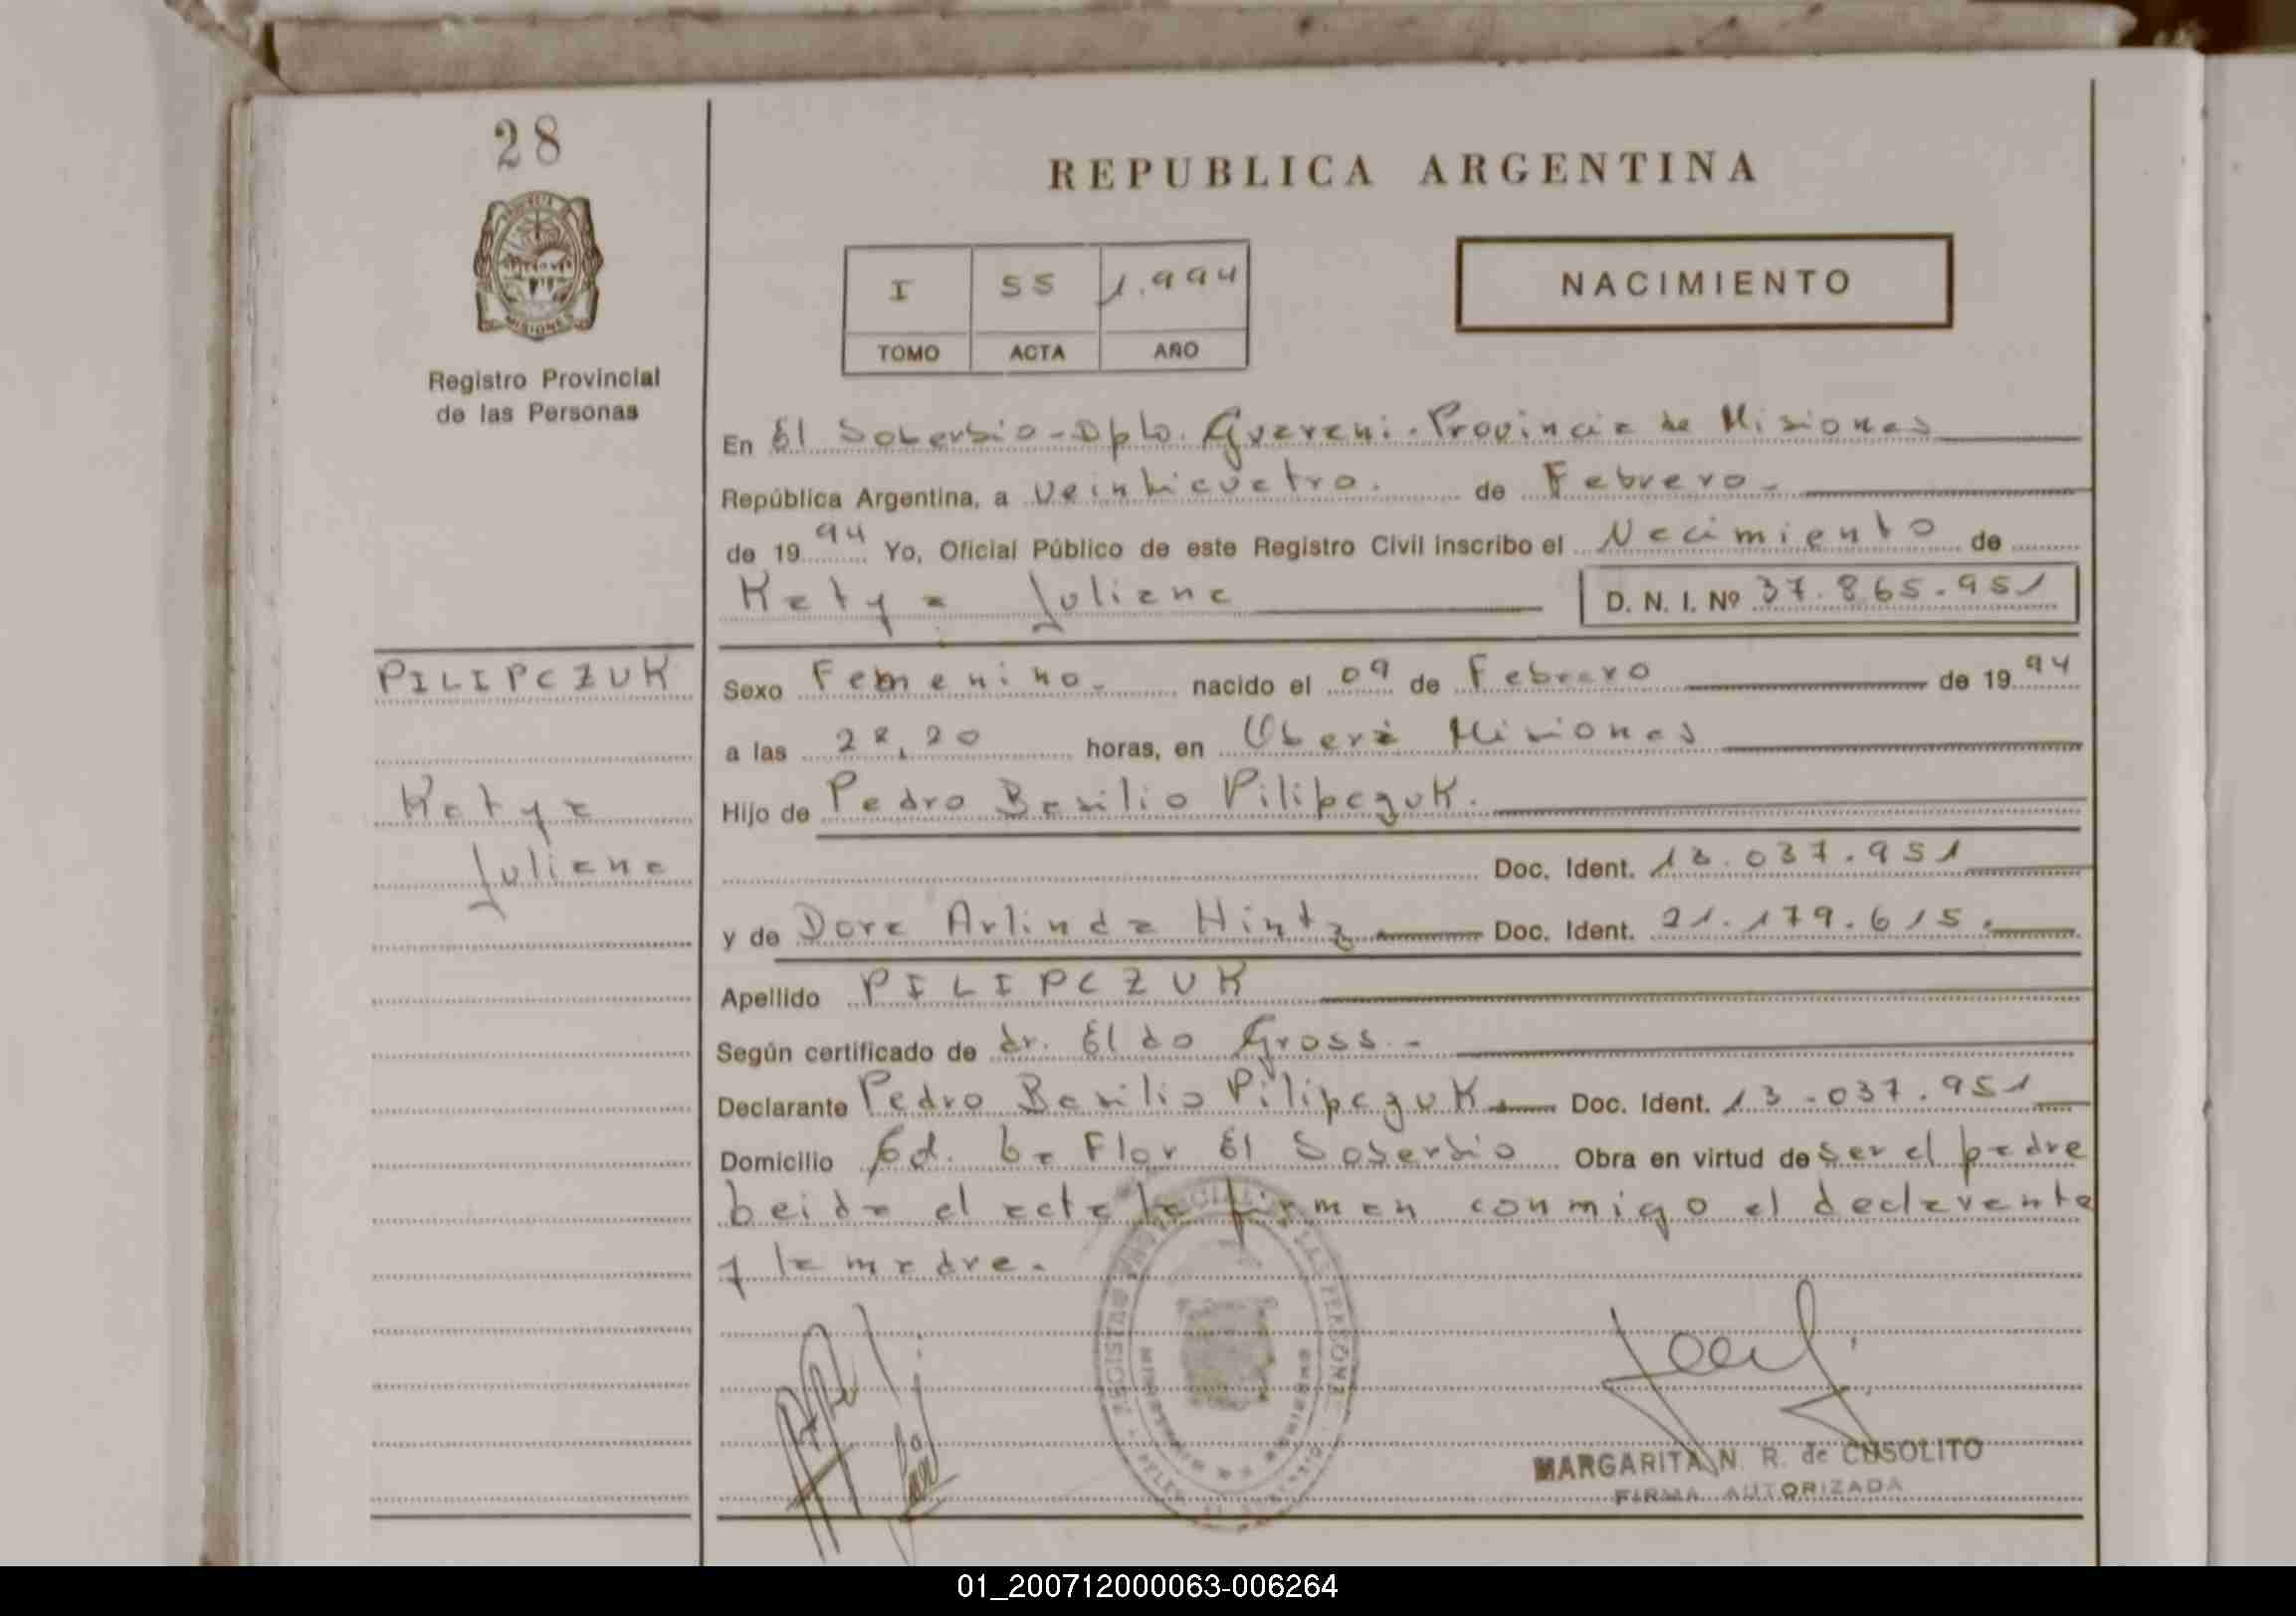 28
REPUBLICA ARGENTINA
NACIMIENTO
I 55 1.994
TOMO ACTA AÑO
Registro Provincial
de las Personas
En El Soberbio - Dpto. Guarani - Provincia de Misiones
República Argentina, a Veinticuatro. de Febrero -
de 1994 Yo, Oficial Público de este Registro Civil inscribo el Nacimiento de
Katya Juliana D. N. I. Nº 37.865.951
PILIPCZUK
Katya
Juliana
Sexo Femenino - nacido el 09 de Febrero de 1994
a las horas, en Oberá Misiones
Hijo de Pedro Basilio Pilipczuk.
Doc. Ident. 13.037.951
y de Dora Arlinda Hintz Doc. Ident. 21.179.615.
Apellido PILIPCZUK
Según certificado de dr. Eldo Gross. -
Declarante Pedro Basilio Pilipczuk Doc. Ident. 13.037.951
Domicilio La Flor El Soberbio Obra en virtud de ser el padre
Leida el acta la firman conmigo el declarante
y la madre.
MARGARITA N. R. de
FIRMA AUTORIZADA
01_200712000063-006264